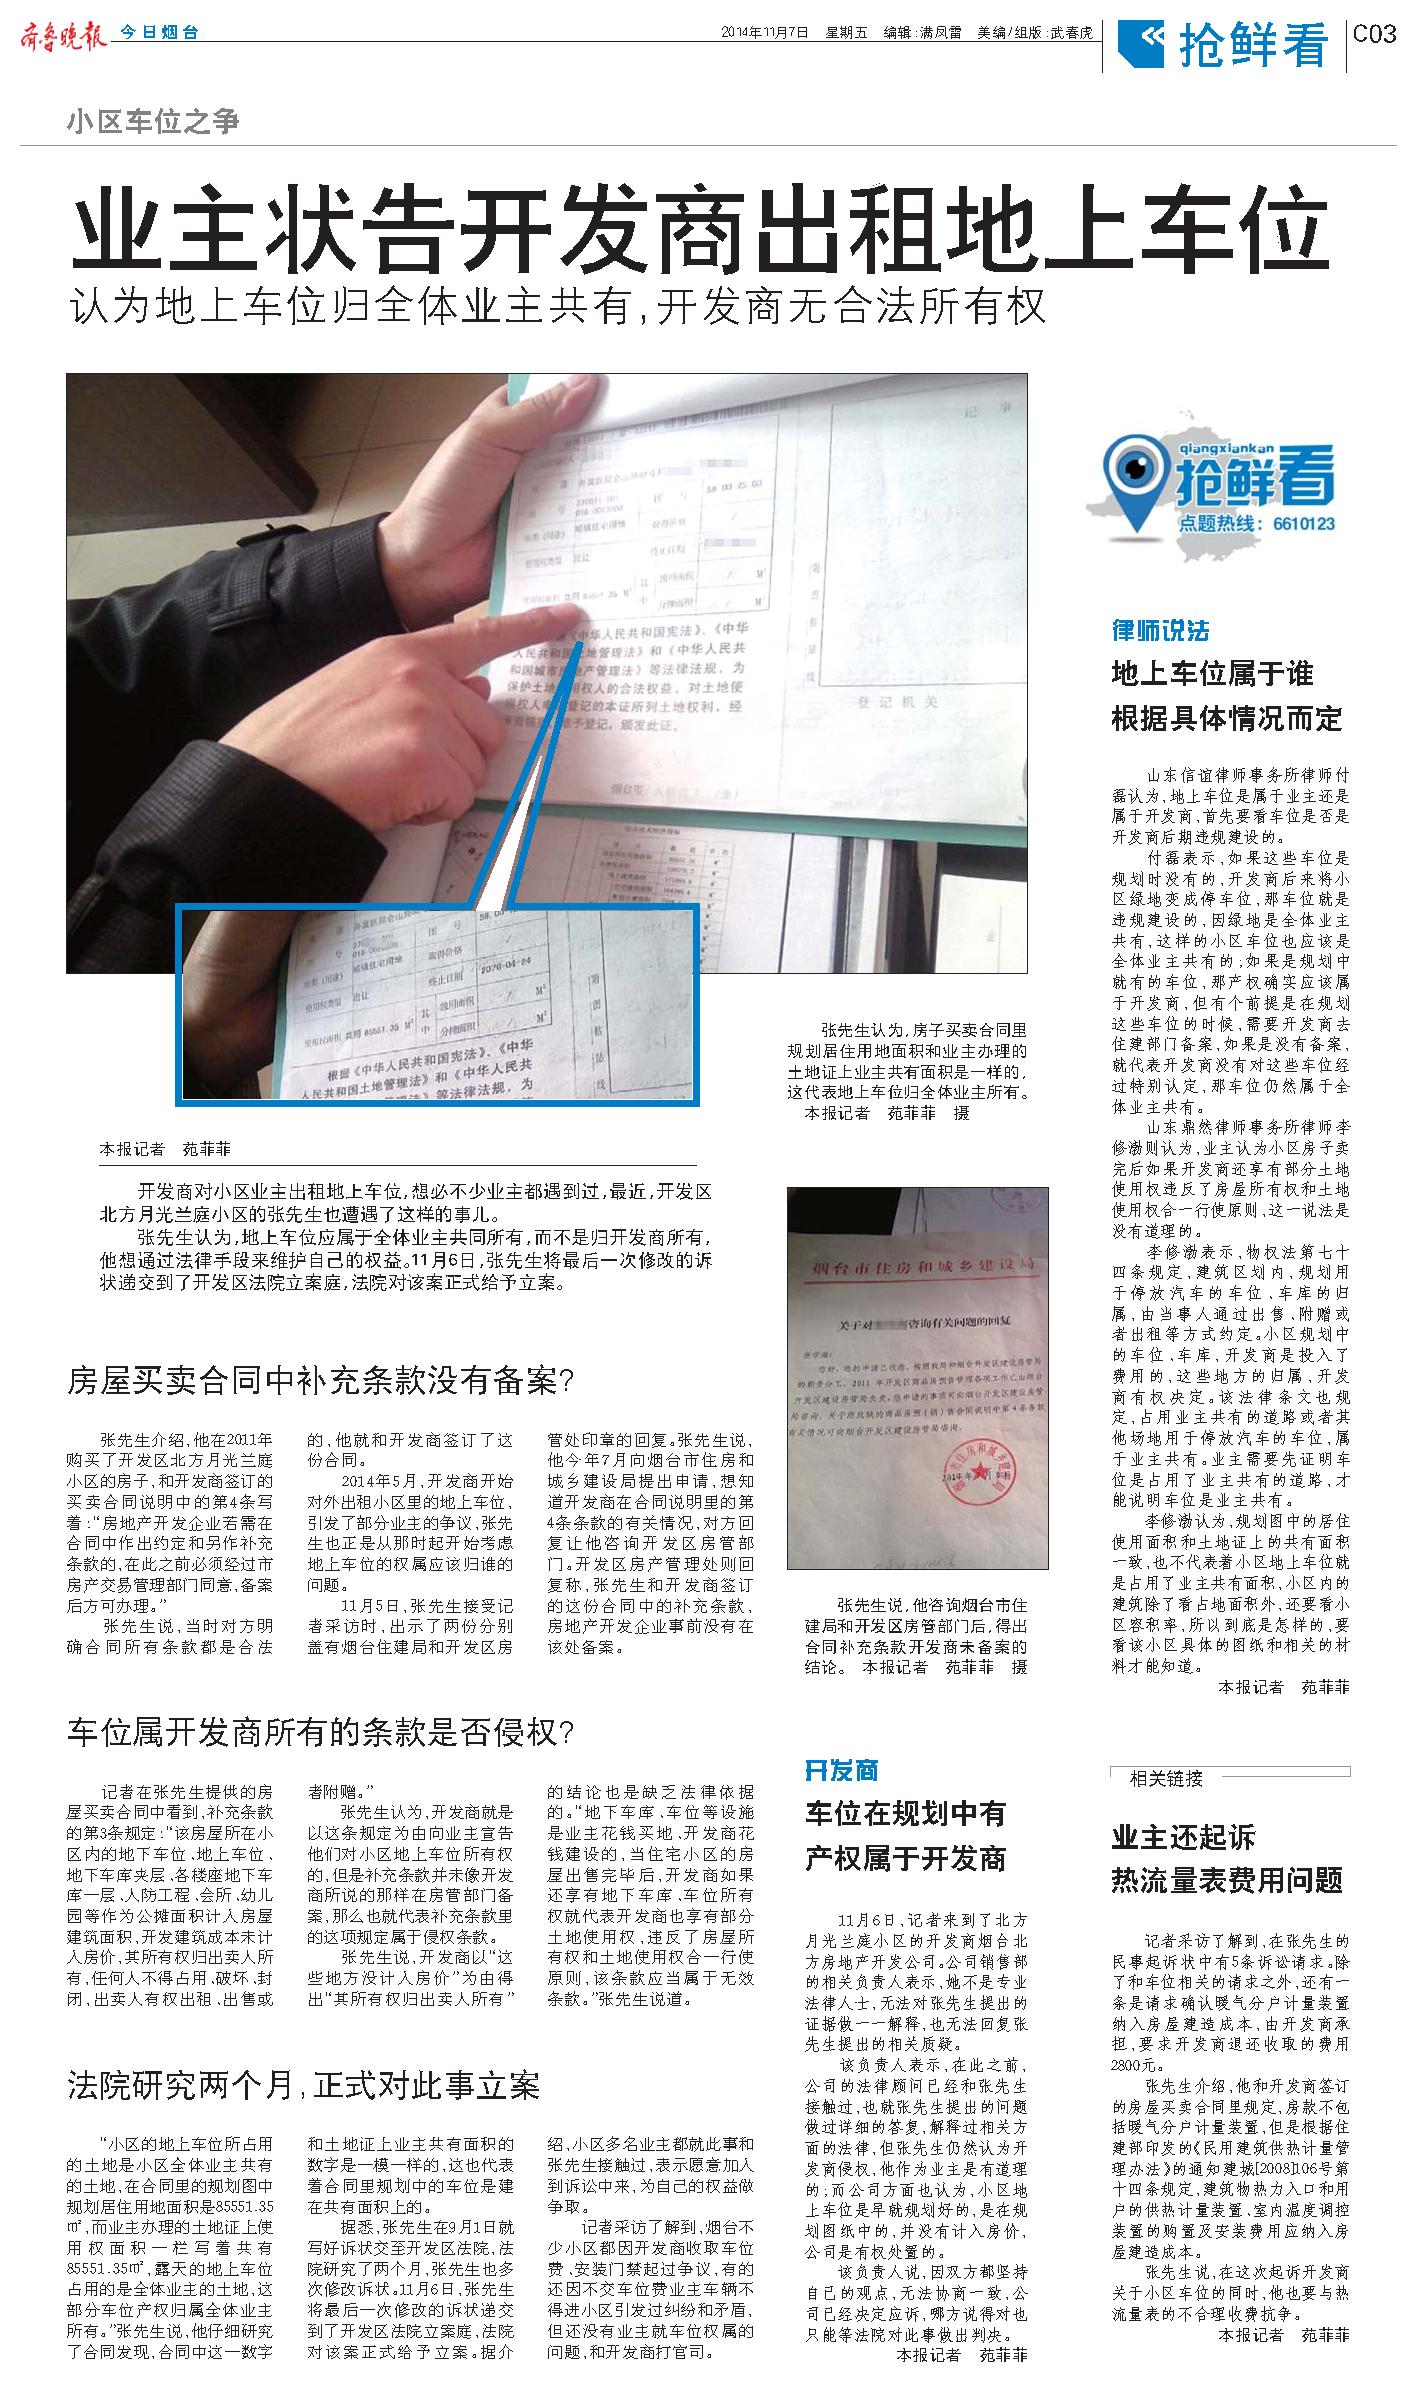 齐鲁晚报 今日烟台
2014年11月7日 星期五 编辑:满凤雷 美编/组版:武春虎
抢鲜看
C03
小区车位之争
业主状告开发商出租地上车位
认为地上车位归全体业主共有,开发商无合法所有权
记事
登记机关
《中华人民共和国宪法》、《中华
和《中华人民共
等法律法规,为
权人的合法权益,对土地使
登记的本证所列土地权利,经
予登记,颁发此证。
取得价格
终止日期 2076-04-24
地类(用途) 城镇住宅用地
使用权类型 出让
独用面积 M²
使用权面积 共用 85551.35 M² 其中 分摊面积
根据《中华人民共和国宪法》、《中华
人民共和国土地管理法》和《中华人民共
等法律法规,为
张先生认为,房子买卖合同里
规划居住用地面积和业主办理的
土地证上业主共有面积是一样的,
这代表地上车位归全体业主所有。
本报记者 苑菲菲 摄
本报记者 苑菲菲
开发商对小区业主出租地上车位,想必不少业主都遇到过,最近,开发区
北方月光兰庭小区的张先生也遭遇了这样的事儿。
张先生认为,地上车位应属于全体业主共同所有,而不是归开发商所有,
他想通过法律手段来维护自己的权益。11月6日,张先生将最后一次修改的诉
状递交到了开发区法院立案庭,法院对该案正式给予立案。
房屋买卖合同中补充条款没有备案?
张先生介绍,他在2011年
购买了开发区北方月光兰庭
小区的房子,和开发商签订的
买卖合同说明中的第4条写
着:“房地产开发企业若需在
合同中作出约定和另作补充
条款的,在此之前必须经过市
房产交易管理部门同意,备案
后方可办理。”
张先生说,当时对方明
确合同所有条款都是合法
的,他就和开发商签订了这
份合同。
2014年5月,开发商开始
对外出租小区里的地上车位,
引发了部分业主的争议,张先
生也正是从那时起开始考虑
地上车位的权属应该归谁的
问题。
11月5日,张先生接受记
者采访时,出示了两份分别
盖有烟台住建局和开发区房
管处印章的回复。张先生说,
他今年7月向烟台市住房和
城乡建设局提出申请,想知
道开发商在合同说明里的第
4条条款的有关情况,对方回
复让他咨询开发区房管部
门。开发区房产管理处则回
复称,张先生和开发商签订
的这份合同中的补充条款,
房地产开发企业事前没有在
该处备案。
烟台市住房和城乡建设局
关于对 咨询有关问题的回复
您好,您的申请已收悉。按照我局和烟台开发区建设房管局
的职责分工,2011年开发区商品房预售管理各项工作已由烟台
开发区建设房管局负责。您申请的事项可向烟台开发区建设房管
局咨询。关于您反映的商品房预(销)售合同说明中第4条条款
有关情况可向烟台开发区建设房管局咨询。
张先生说,他咨询烟台市住
建局和开发区房管部门后,得出
合同补充条款开发商未备案的
结论。 本报记者 苑菲菲 摄
车位属开发商所有的条款是否侵权?
记者在张先生提供的房
屋买卖合同中看到,补充条款
的第3条规定:“该房屋所在小
区内的地下车位、地上车位、
地下车库夹层、各楼座地下车
库一层、人防工程、会所、幼儿
园等作为公摊面积计入房屋
建筑面积,开发建筑成本未计
入房价,其所有权归出卖人所
有,任何人不得占用、破坏、封
闭,出卖人有权出租、出售或
者附赠。”
张先生认为,开发商就是
以这条规定为由向业主宣告
他们对小区地上车位所有权
的,但是补充条款并未像开发
商所说的那样在房管部门备
案,那么也就代表补充条款里
的这项规定属于侵权条款。
张先生说,开发商以“这
些地方没计入房价”为由得
出“其所有权归出卖人所有”
的结论也是缺乏法律依据
的。“地下车库、车位等设施
是业主花钱买地、开发商花
钱建设的,当住宅小区的房
屋出售完毕后,开发商如果
还享有地下车库、车位所有
权就代表开发商也享有部分
土地使用权,违反了房屋所
有权和土地使用权合一行使
原则,该条款应当属于无效
条款。”张先生说道。
法院研究两个月,正式对此事立案
“小区的地上车位所占用
的土地是小区全体业主共有
的土地,在合同里的规划图中
规划居住用地面积是85551.35
㎡,而业主办理的土地证上使
用权面积一栏写着共有
85551.35㎡,露天的地上车位
占用的是全体业主的土地,这
部分车位产权归属全体业主
所有。”张先生说,他仔细研究
了合同发现,合同中这一数字
和土地证上业主共有面积的
数字是一模一样的,这也代表
着合同里规划中的车位是建
在共有面积上的。
据悉,张先生在9月1日就
写好诉状交至开发区法院,法
院研究了两个月,张先生也多
次修改诉状。11月6日,张先生
将最后一次修改的诉状递交
到了开发区法院立案庭,法院
对该案正式给予立案。据介
绍,小区多名业主都就此事和
张先生接触过,表示愿意加入
到诉讼中来,为自己的权益做
争取。
记者采访了解到,烟台不
少小区都因开发商收取车位
费、安装门禁起过争议,有的
还因不交车位费业主车辆不
得进小区引发过纠纷和矛盾,
但还没有业主就车位权属的
问题,和开发商打官司。
开发商
车位在规划中有
产权属于开发商
11月6日,记者来到了北方
月光兰庭小区的开发商烟台北
方房地产开发公司。公司销售部
的相关负责人表示,她不是专业
法律人士,无法对张先生提出的
证据做一一解释,也无法回复张
先生提出的相关质疑。
该负责人表示,在此之前,
公司的法律顾问已经和张先生
接触过,也就张先生提出的问题
做过详细的答复,解释过相关方
面的法律,但张先生仍然认为开
发商侵权,他作为业主是有道理
的;而公司方面也认为,小区地
上车位是早就规划好的,是在规
划图纸中的,并没有计入房价,
公司是有权处置的。
该负责人说,因双方都坚持
自己的观点,无法协商一致,公
司已经决定应诉,哪方说得对也
只能等法院对此事做出判决。
本报记者 苑菲菲
qiangxiankan
抢鲜看
点题热线:6610123
律师说法
地上车位属于谁
根据具体情况而定
山东信谊律师事务所律师付
磊认为,地上车位是属于业主还是
属于开发商,首先要看车位是否是
开发商后期违规建设的。
付磊表示,如果这些车位是
规划时没有的,开发商后来将小
区绿地变成停车位,那车位就是
违规建设的,因绿地是全体业主
共有,这样的小区车位也应该是
全体业主共有的;如果是规划中
就有的车位,那产权确实应该属
于开发商,但有个前提是在规划
这些车位的时候,需要开发商去
住建部门备案,如果是没有备案,
就代表开发商没有对这些车位经
过特别认定,那车位仍然属于全
体业主共有。
山东鼎然律师事务所律师李
修渤则认为,业主认为小区房子卖
完后如果开发商还享有部分土地
使用权违反了房屋所有权和土地
使用权合一行使原则,这一说法是
没有道理的。
李修渤表示,物权法第七十
四条规定,建筑区划内,规划用
于停放汽车的车位、车库的归
属,由当事人通过出售、附赠或
者出租等方式约定。小区规划中
的车位、车库,开发商是投入了
费用的,这些地方的归属,开发
商有权决定。该法律条文也规
定,占用业主共有的道路或者其
他场地用于停放汽车的车位,属
于业主共有。业主需要先证明车
位是占用了业主共有的道路,才
能说明车位是业主共有。
李修渤认为,规划图中的居住
使用面积和土地证上的共有面积
一致,也不代表着小区地上车位就
是占用了业主共有面积,小区内的
建筑除了看占地面积外,还要看小
区容积率,所以到底是怎样的,要
看该小区具体的图纸和相关的材
料才能知道。
本报记者 苑菲菲
相关链接
业主还起诉
热流量表费用问题
记者采访了解到,在张先生的
民事起诉状中有5条诉讼请求。除
了和车位相关的请求之外,还有一
条是请求确认暖气分户计量装置
纳入房屋建造成本,由开发商承
担,要求开发商退还收取的费用
2800元。
张先生介绍,他和开发商签订
的房屋买卖合同里规定,房款不包
括暖气分户计量装置,但是根据住
建部印发的《民用建筑供热计量管
理办法》的通知建城[2008]106号第
十四条规定,建筑物热力入口和用
户的供热计量装置、室内温度调控
装置的购置及安装费用应纳入房
屋建造成本。
张先生说,在这次起诉开发商
关于小区车位的同时,他也要与热
流量表的不合理收费抗争。
本报记者 苑菲菲